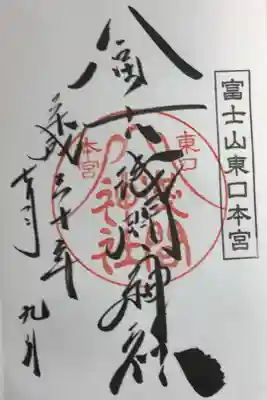 富士山東口本宮
冨士浅間神社
東口
本宮
平成三十年九月